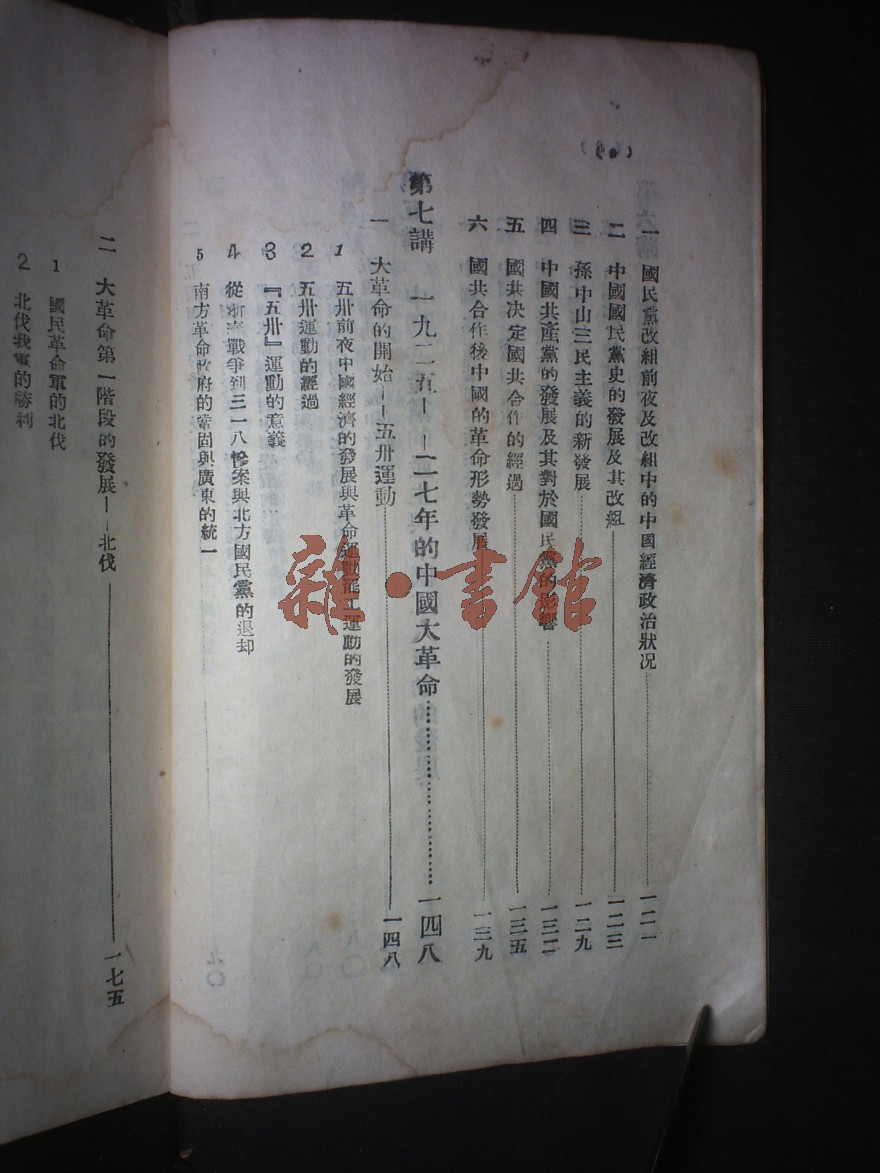 一 國民黨改組前夜及改組中的中國經濟政治狀況……一二一
二 中國國民黨史的發展及其改組……一二三
三 孫中山三民主義的新發展……一二九
四 中國共產黨的發展及其對於國民黨的影響……一三二
五 國共決定國共合作的經過……一三五
六 國共合作後中國的革命形勢發展……一三九
第七講 一九二五——二七年的中國大革命……一四八
一 大革命的開始——五卅運動……一四八
1 五卅前夜中國經濟的發展與革命運動罷工運動的發展
2 五卅運動的經過
3 『五卅』運動的意義
4 從浙奉戰爭到三一八慘案與北方國民黨的退却
5 南方革命政府的鞏固與廣東的統一
二 大革命第一階段的發展——北伐……一七五
1 國民革命軍的北伐
2 北伐我軍的勝利
雜·書館